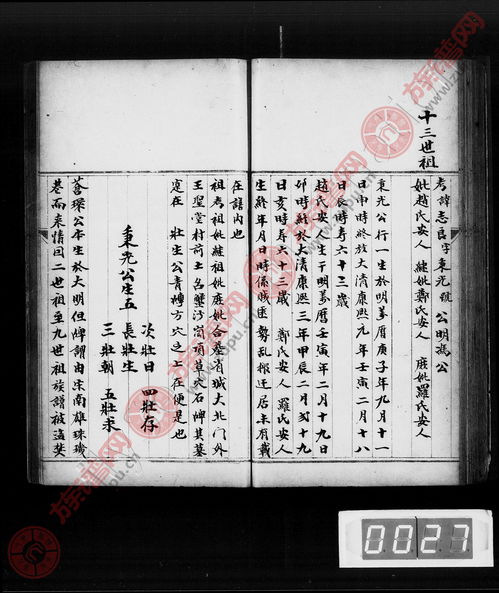 十三世祖
考諱志良字東光號公明馮公
妣趙氏安人 繼妣鄭氏安人 庶妣羅氏安人
東光公行一生於明萬曆庚子年九月十一
日申時終於大清康熙元年壬寅二月十八
日辰時寿六十三歲
趙氏安人生于明萬曆壬寅年二月十九日
卯時終於大清康熙三年甲辰二月初十九
日亥時寿六十三歲 鄭氏安人 羅氏安人
生終年月日時係賊匪勢乱搬迁居未有載
在譜內也
祖考祖妣繼祖妣庶妣合葬省城大北門外
王聖堂村前土名蟹沙崗項草穴石碑其墓
定在 壯生公青磚方穴之上左便是也
東光公生五 長壯生 次壯日
三壯朝 四壯存 五壯柔
蒼璨公本生於大明但碑謂由宋南雄珠璣
巷而來情因二世祖至九世祖族譜被盜焚
族譜网
0027